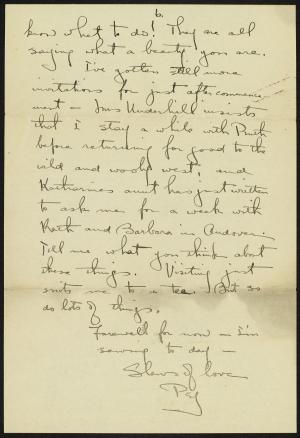 6.
know what to do! They are all
saying what a beauty you are.
I've gotten still more
invitations for just after commence-
ment — Mrs Underhill insists
that I stay a while with Ruth
before returning for good to the
wild and wooly west; and
Katharine's aunt has just written
to ask me for a week with
Kath and Barbara in Andover.
Tell me what you think about
these things. Visiting just
suits me to a tea. But so
do lots of things.
Farewell for now — I'm
sewing to day —
Slews of love
Peg